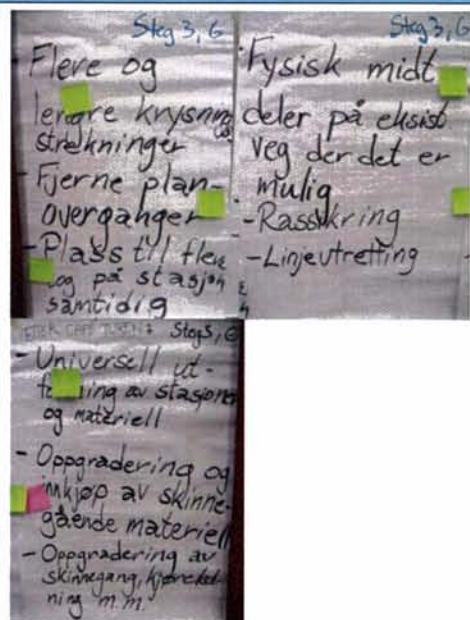 Steg 3, G
Flere og
lengre krysnings
strekninger
- Fjerne plan-
overganger
- Plass til flere
tog på stasjon
samtidig
Steg 3, G
Fysisk midt
deler på eksist.
veg der det er
mulig
- Rassikring
- Linjeutretting
Steg 3, G
- Universell ut-
forming av stasjoner
og materiell
- Oppgradering og
innkjøp av skinne-
gående materiell
- Oppgradering av
skinnegang, kjøreled-
ning m.m.